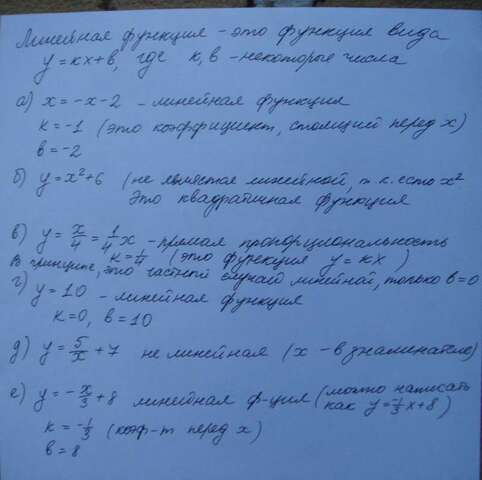 Линейная функция - это функция вида
y = kx + b, где k, b - некоторые числа
а) x = -x - 2 - линейная функция
k = -1 (это коэффициент, стоящий перед x)
b = -2
б) y = x² + 6 (не является линейной, т.к. есть x²
Это квадратичная функция
в) y = x/4 = 1/4 x - прямая пропорциональность
k = 1/4 (это функция y = kx)
В принципе, это частный случай линейной, только b = 0
г) y = 10 - линейная функция
k = 0, b = 10
д) y = 5/x + 7 не линейная (x - в знаменателе)
е) y = -x/3 + 8 линейная ф-ция (можно написать
как y = -1/3 x + 8)
k = -1/3 (коэф-т перед x)
b = 8